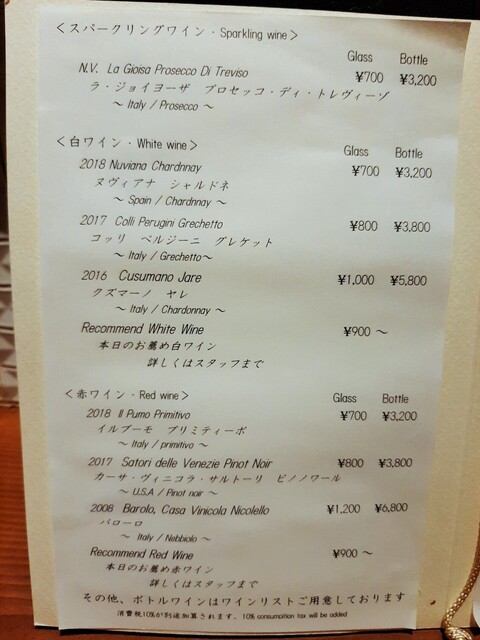 ＜スパークリングワイン・Sparkling wine＞
Glass Bottle
N.V. La Gioisa Prosecco Di Treviso ¥700 ¥3,200
ラ・ジョイヨーザ プロセッコ・ディ・トレヴィーゾ
～ Italy / Prosecco ～
＜白ワイン・White wine＞
Glass Bottle
2018 Nuviana Chardnnay ¥700 ¥3,200
ヌヴィアナ シャルドネ
～ Spain / Chardnnay ～
2017 Colli Perugini Grechetto ¥800 ¥3,800
コッリ ペルジーニ グレケット
～ Italy / Grechetto～
2016 Cusumano Jare ¥1,000 ¥5,800
クズマーノ ヤレ
～ Italy / Chardonnay ～
Recommend White Wine ¥900 ～
本日のお薦め白ワイン
詳しくはスタッフまで
＜赤ワイン・Red wine＞
Glass Bottle
2018 Il Pumo Primitivo ¥700 ¥3,200
イルプーモ プリミティーボ
～ Italy / primitivo ～
2017 Satori delle Venezie Pinot Noir ¥800 ¥3,800
カーサ・ヴィニコラ・サルトーリ ピノノワール
～ U.S.A / Pinot noir ～
2008 Barolo, Casa Vinicola Nicolello ¥1,200 ¥6,800
バローロ
～ Italy / Nebbiolo ～
Recommend Red Wine ¥900 ～
本日のお薦め赤ワイン
詳しくはスタッフまで
その他、ボトルワインはワインリストご用意しております
消費税10%が別途加算されます、10% consumption tax will be added